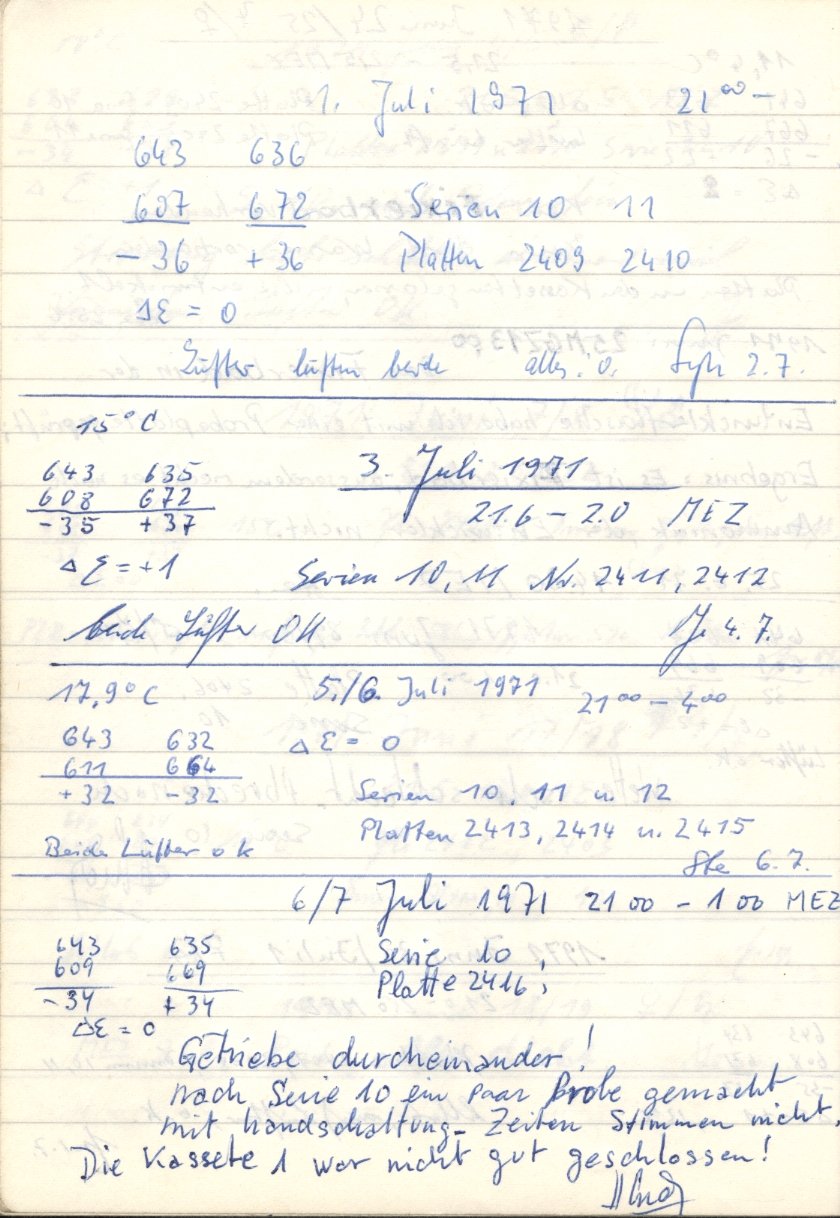 1. Juli 1971 21⁰⁰ –
643 636
607 672 Serien 10 11
– 36 + 36 Platten 2409 2410
ΔΣ = 0
Lüfter lüften beide alles i.O. 2.7.
15°C
643 635 3 Juli 1971
608 672
- 35 + 37 21.6 – 2.0 MEZ
ΔΣ = +1 Serien 10, 11 Nr. 2411, 2412
beide Lüfter OK 4.7.
17,9°C 5./6. Juli 1971 21⁰⁰ – 4⁰⁰
643 632 ΔΣ = 0
611 664
+ 32 - 32 Serien 10, 11 u. 12
Platten 2413, 2414 u. 2415
Beide Lüfter ok Ste 6.7.
6/7 Juli 1971 21 00 – 1 00 MEZ
643 635 Serie 10
609 669 Platte 2416;
- 34 + 34
ΔΣ = 0
Getriebe durcheinander!
nach Serie 10 ein paar Probe gemacht
mit handschaltung- Zeiten Stimmen nicht.
Die Kassete 1 war nicht gut geschlossen!